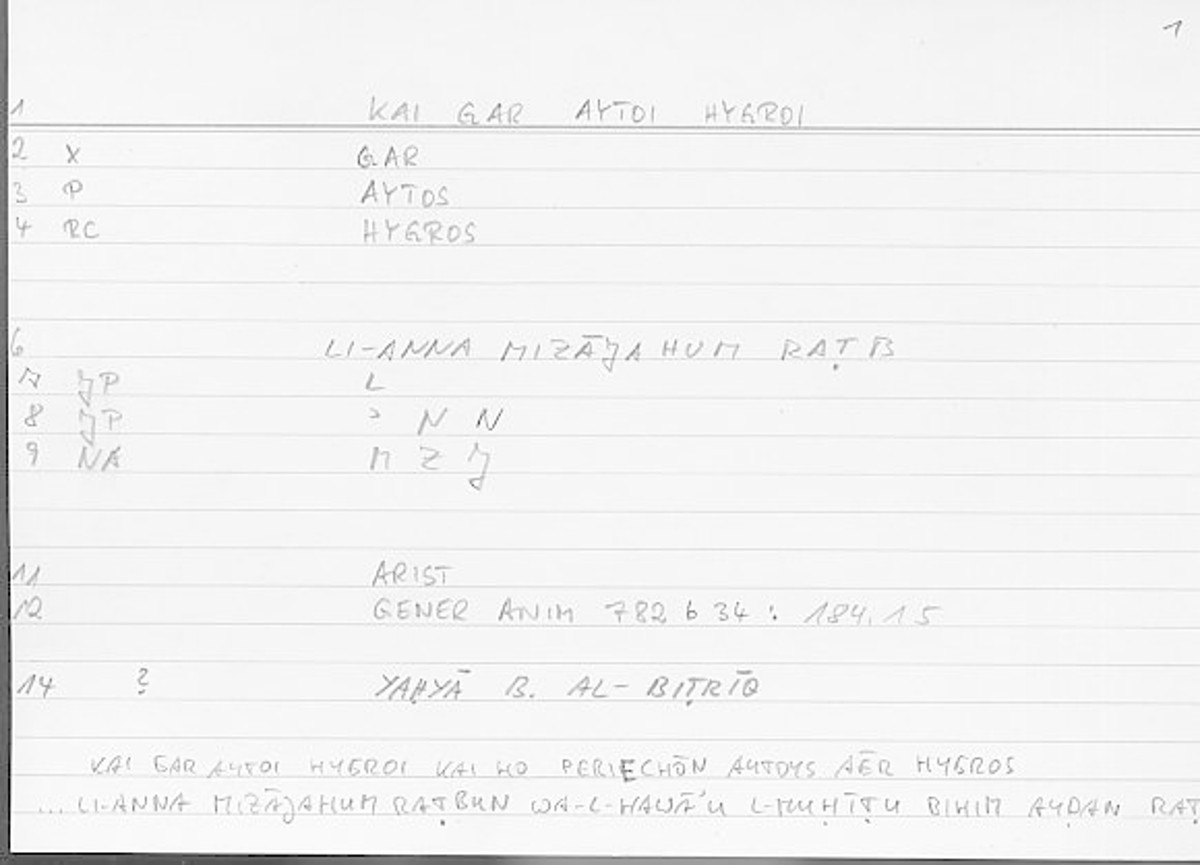 1
1 KAI GAR AYTOI HYGROI
2 X GAR
3 P AYTOS
4 RC HYGROS
6 LI-ANNA MIZĀJAHUM RAṬB
7 JP L
8 JP ʾ N N
9 NA M Z J
11 ARIST
12 GENER ANIM 782 b 34 : 184,15
14 ? YAḤYĀ B. AL-BIṬRĪQ
KAI GAR AYTOI HYGROI KAI HO PERIECHŌN AYTOYS AĒR HYGROS
... LI-ANNA MIZĀJAHUM RAṬBUN WA-L-HAWĀʾU L-MUḤĪṬU BIHIM AYḌAN RAṬ